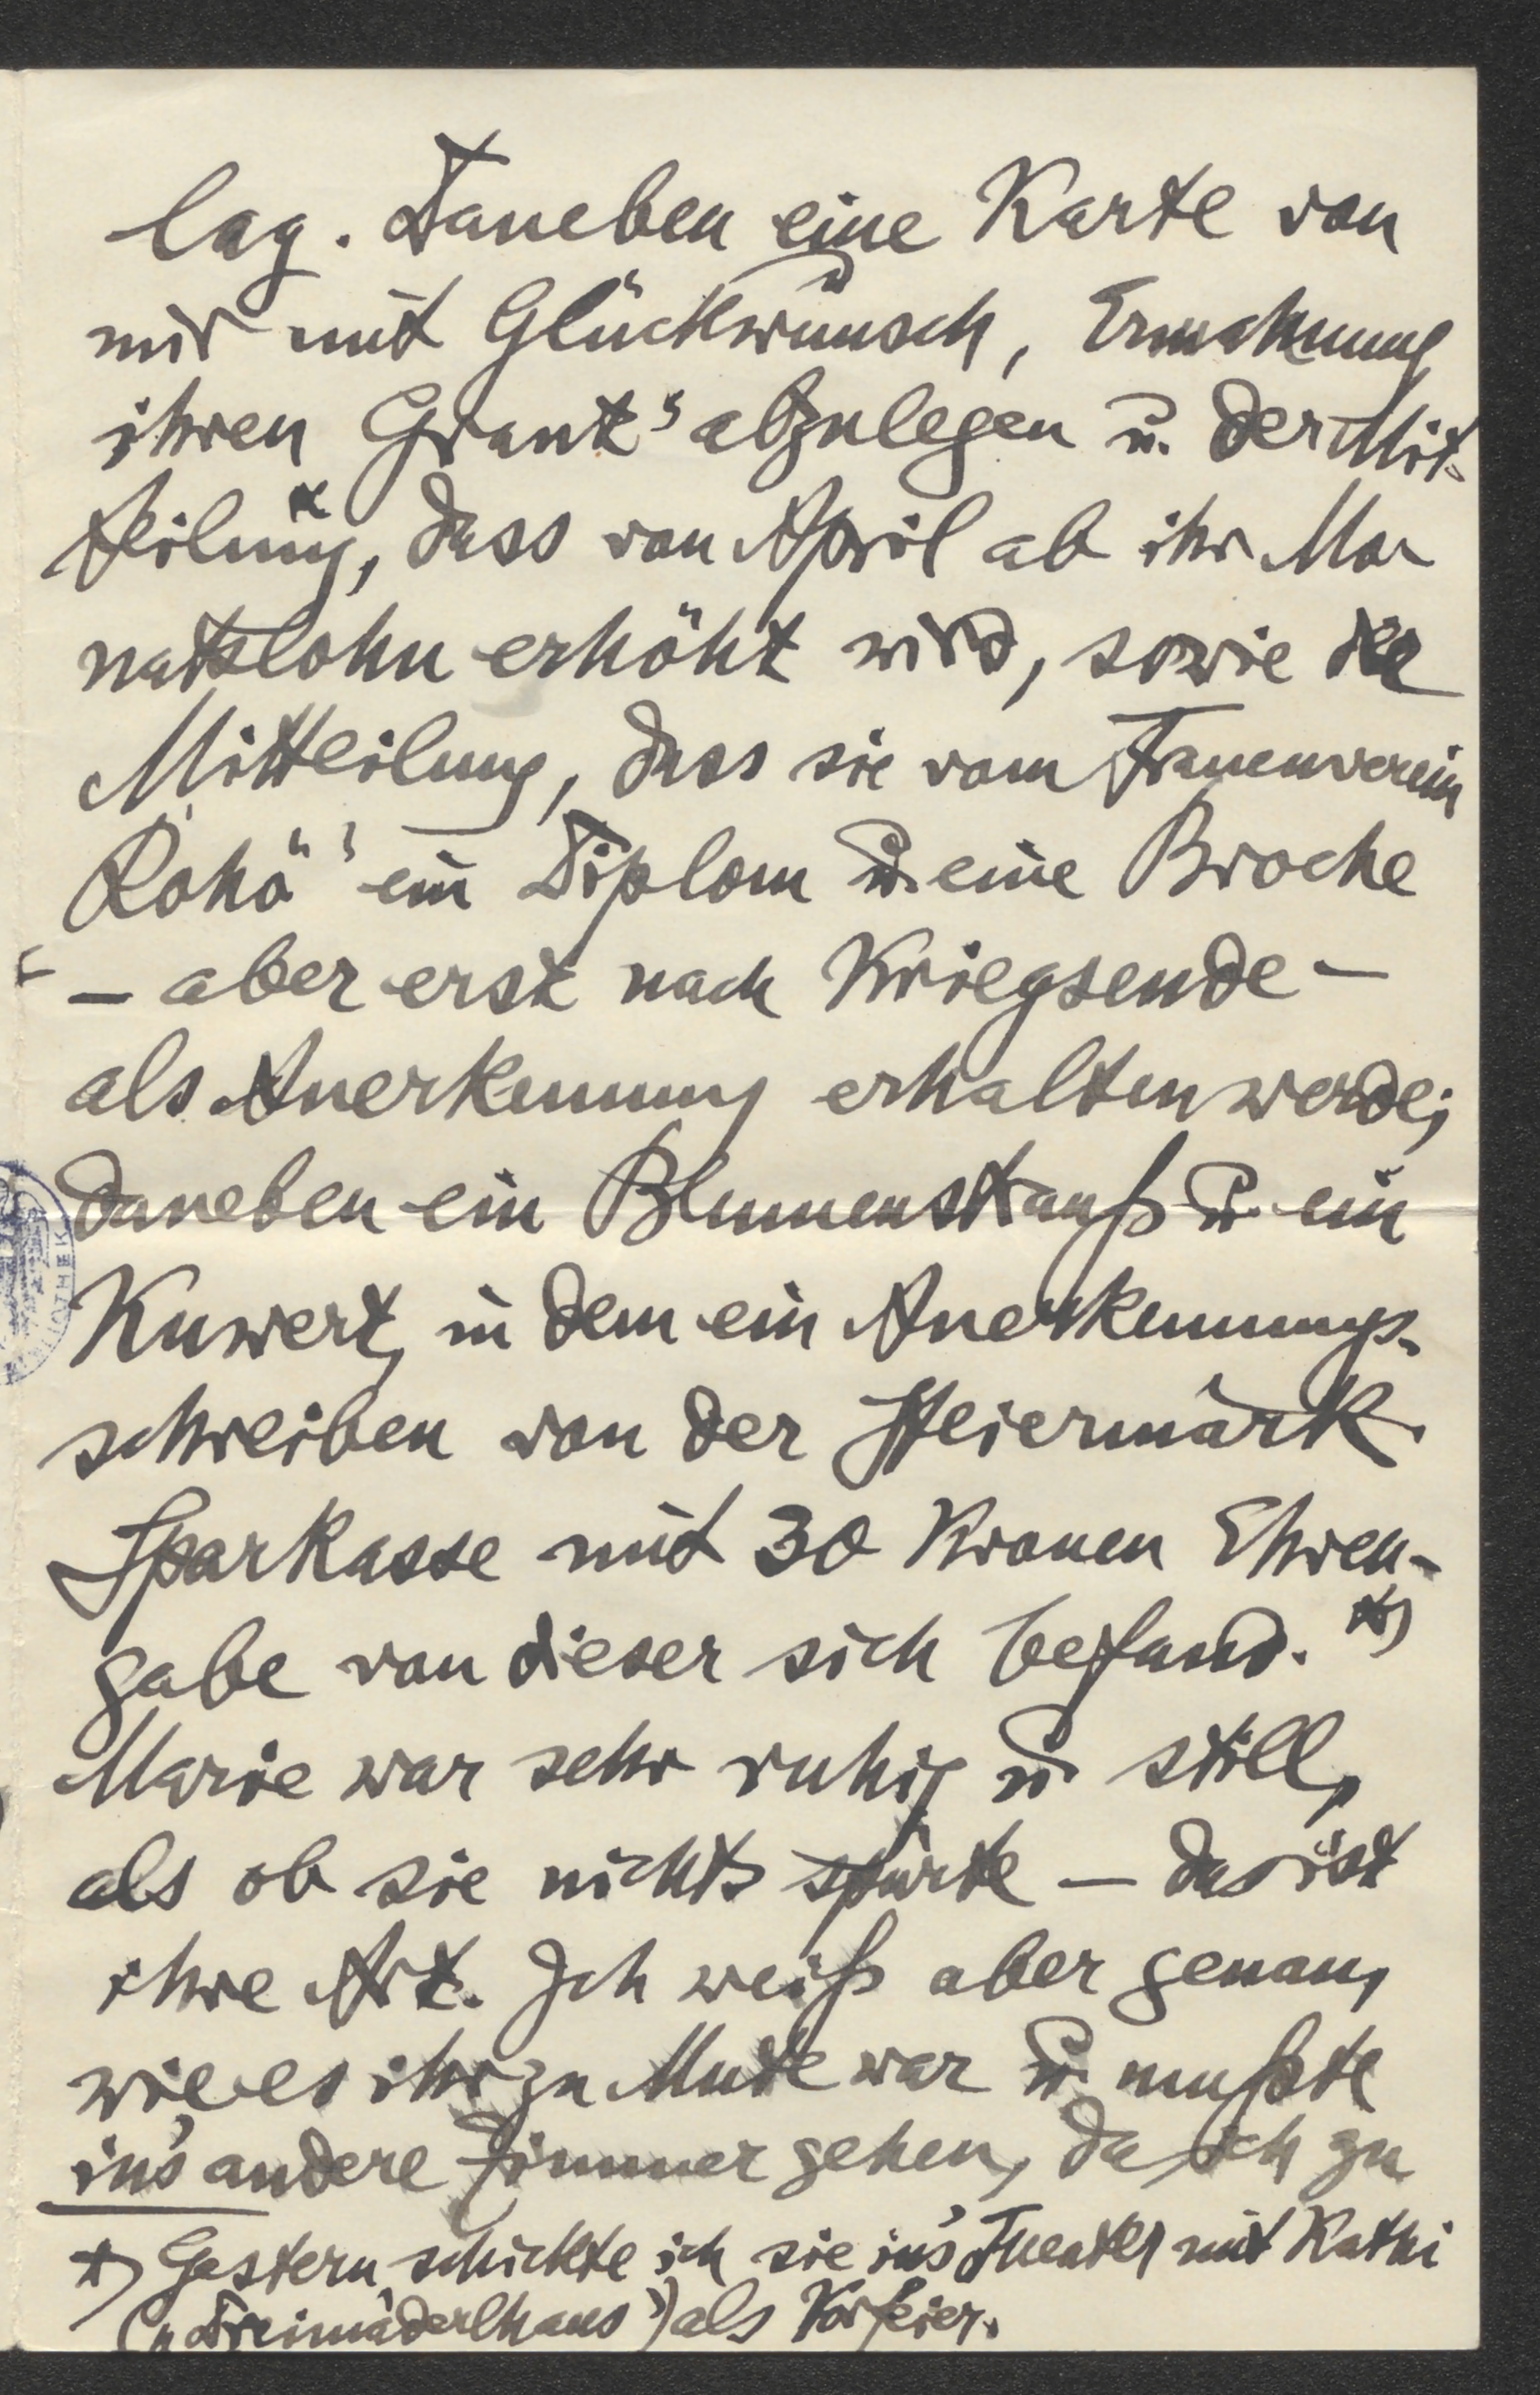 lag. Daneben eine Karte von
mir mit Glückwunsch, Ermahnung
ihren „Grant“ abzulegen u. der Mit-
teilung, dass von April ab ihr Mo-
natslohn erhöht wird, sowie der
Mitteilung, dass sie vom Frauenverein
„Rohö“ ein Diplom u. eine Broche
– aber erst nach Kriegsende –
als Anerkennung erhalten werde;
daneben ein Blumenstrauß u. ein
Kuwert, in dem ein Anerkennungs-
schreiben von der Steiermärk.
Sparkasse mit 30 Kronen Ehren-
gabe von dieser sich befand. *)
Marie war sehr ruhig u. still,
als ob sie nichts spürte – das ist
ihre Art. Ich weiß aber genau,
wie es ihr zu Mute war u. mußte
in's andere Zimmer gehen, da ich zu
*) Gestern schickte ich sie in's Theater mit Kathi
(„Dreimäderlhaus“) als Vorfeier.